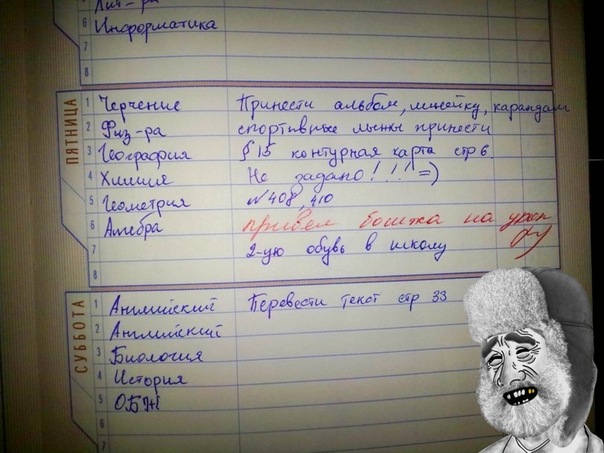 Лит-ра
6 Информатика
7
8
ПЯТНИЦА
1 Черчение Принести альбом, линейку, карандаш
2 Физ-ра спортивные лыжи принести
3 География § 15 контурная карта стр 6.
4 Химия Не задано!!!! =)
5 Геометрия №408, 410
6 Алгебра привел бомжа на урок
7 2-ую обувь в школу
8
СУББОТА
1 Английский Перевести текст стр 33
2 Английский
3 Биология
4 История
5 ОБЖ
6
7